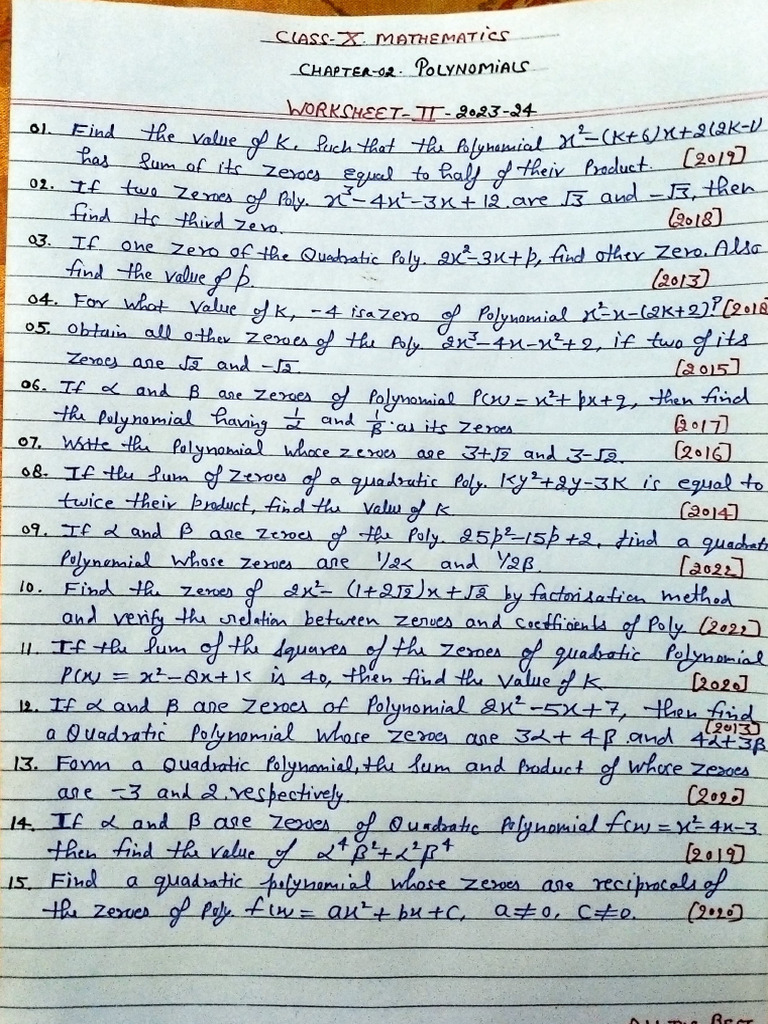 CLASS-X MATHEMATICS
CHAPTER-02. POLYNOMIALS
WORKSHEET-II-2023-24
01. Find the value of K. Such that the Polynomial x²-(K+6)x+2(2K-1)
has Sum of its Zeroes equal to half of their Product. [2019]
02. If two Zeroes of Poly. x³-4x²-3x+12 are √3 and -√3, then
find its third Zero. [2018]
03. If one Zero of the Quadratic Poly. 2x²-3x+p, find other Zero. Also
find the value of p. [2013]
04. For what Value of K, -4 is a Zero of Polynomial x²-x-(2K+2)? [2018
05. Obtain all other Zeroes of the Poly 2x³-4x-x²+2, if two of its
Zeroes are √2 and -√2. [2015]
06. If α and β are Zeroes of Polynomial P(x) = x²+px+q, then find
the Polynomial having 1/α and 1/β as its Zeroes [2017]
07. Write the Polynomial whose zeroes are 3+√2 and 3-√2. [2016]
08. If the Sum of Zeroes of a quadratic Poly. Ky²+2y-3K is equal to
twice their Product, find the Value of K [2014]
09. If α and β are zeroes of the Poly. 25p²-15p+2, find a quadrati
Polynomial whose Zeroes are 1/2α and 1/2β. [2022]
10. Find the Zeroes of 2x²-(1+2√2)x+√2 by factorisation method
and verify the relation between zeroes and coefficients of Poly. [2022]
11. If the Sum of the Squares of the Zeroes of quadratic Polynomial
P(x) = x²-8x+K is 40, then find the Value of K. [2020]
12. If α and β are Zeroes of Polynomial 2x²-5x+7, then find
a Quadratic Polynomial whose Zeroes are 3α+4β and 4α+3β [2013]
13. Form a Quadratic Polynomial, the Sum and Product of whose Zeroes
are -3 and 2, respectively. [2020]
14. If α and β are Zeroes of Quadratic Polynomial f(x) = x²-4x-3
then find the value of α⁴β²+α²β⁴ [2019]
15. Find a quadratic polynomial whose zeroes are reciprocals of
the Zeroes of Poly. f(x) = ax²+bx+c, a≠0, c≠0. [2020]
ALL THE BEST